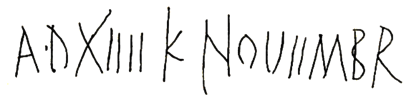 A·D XIIII K NOUIIMBR